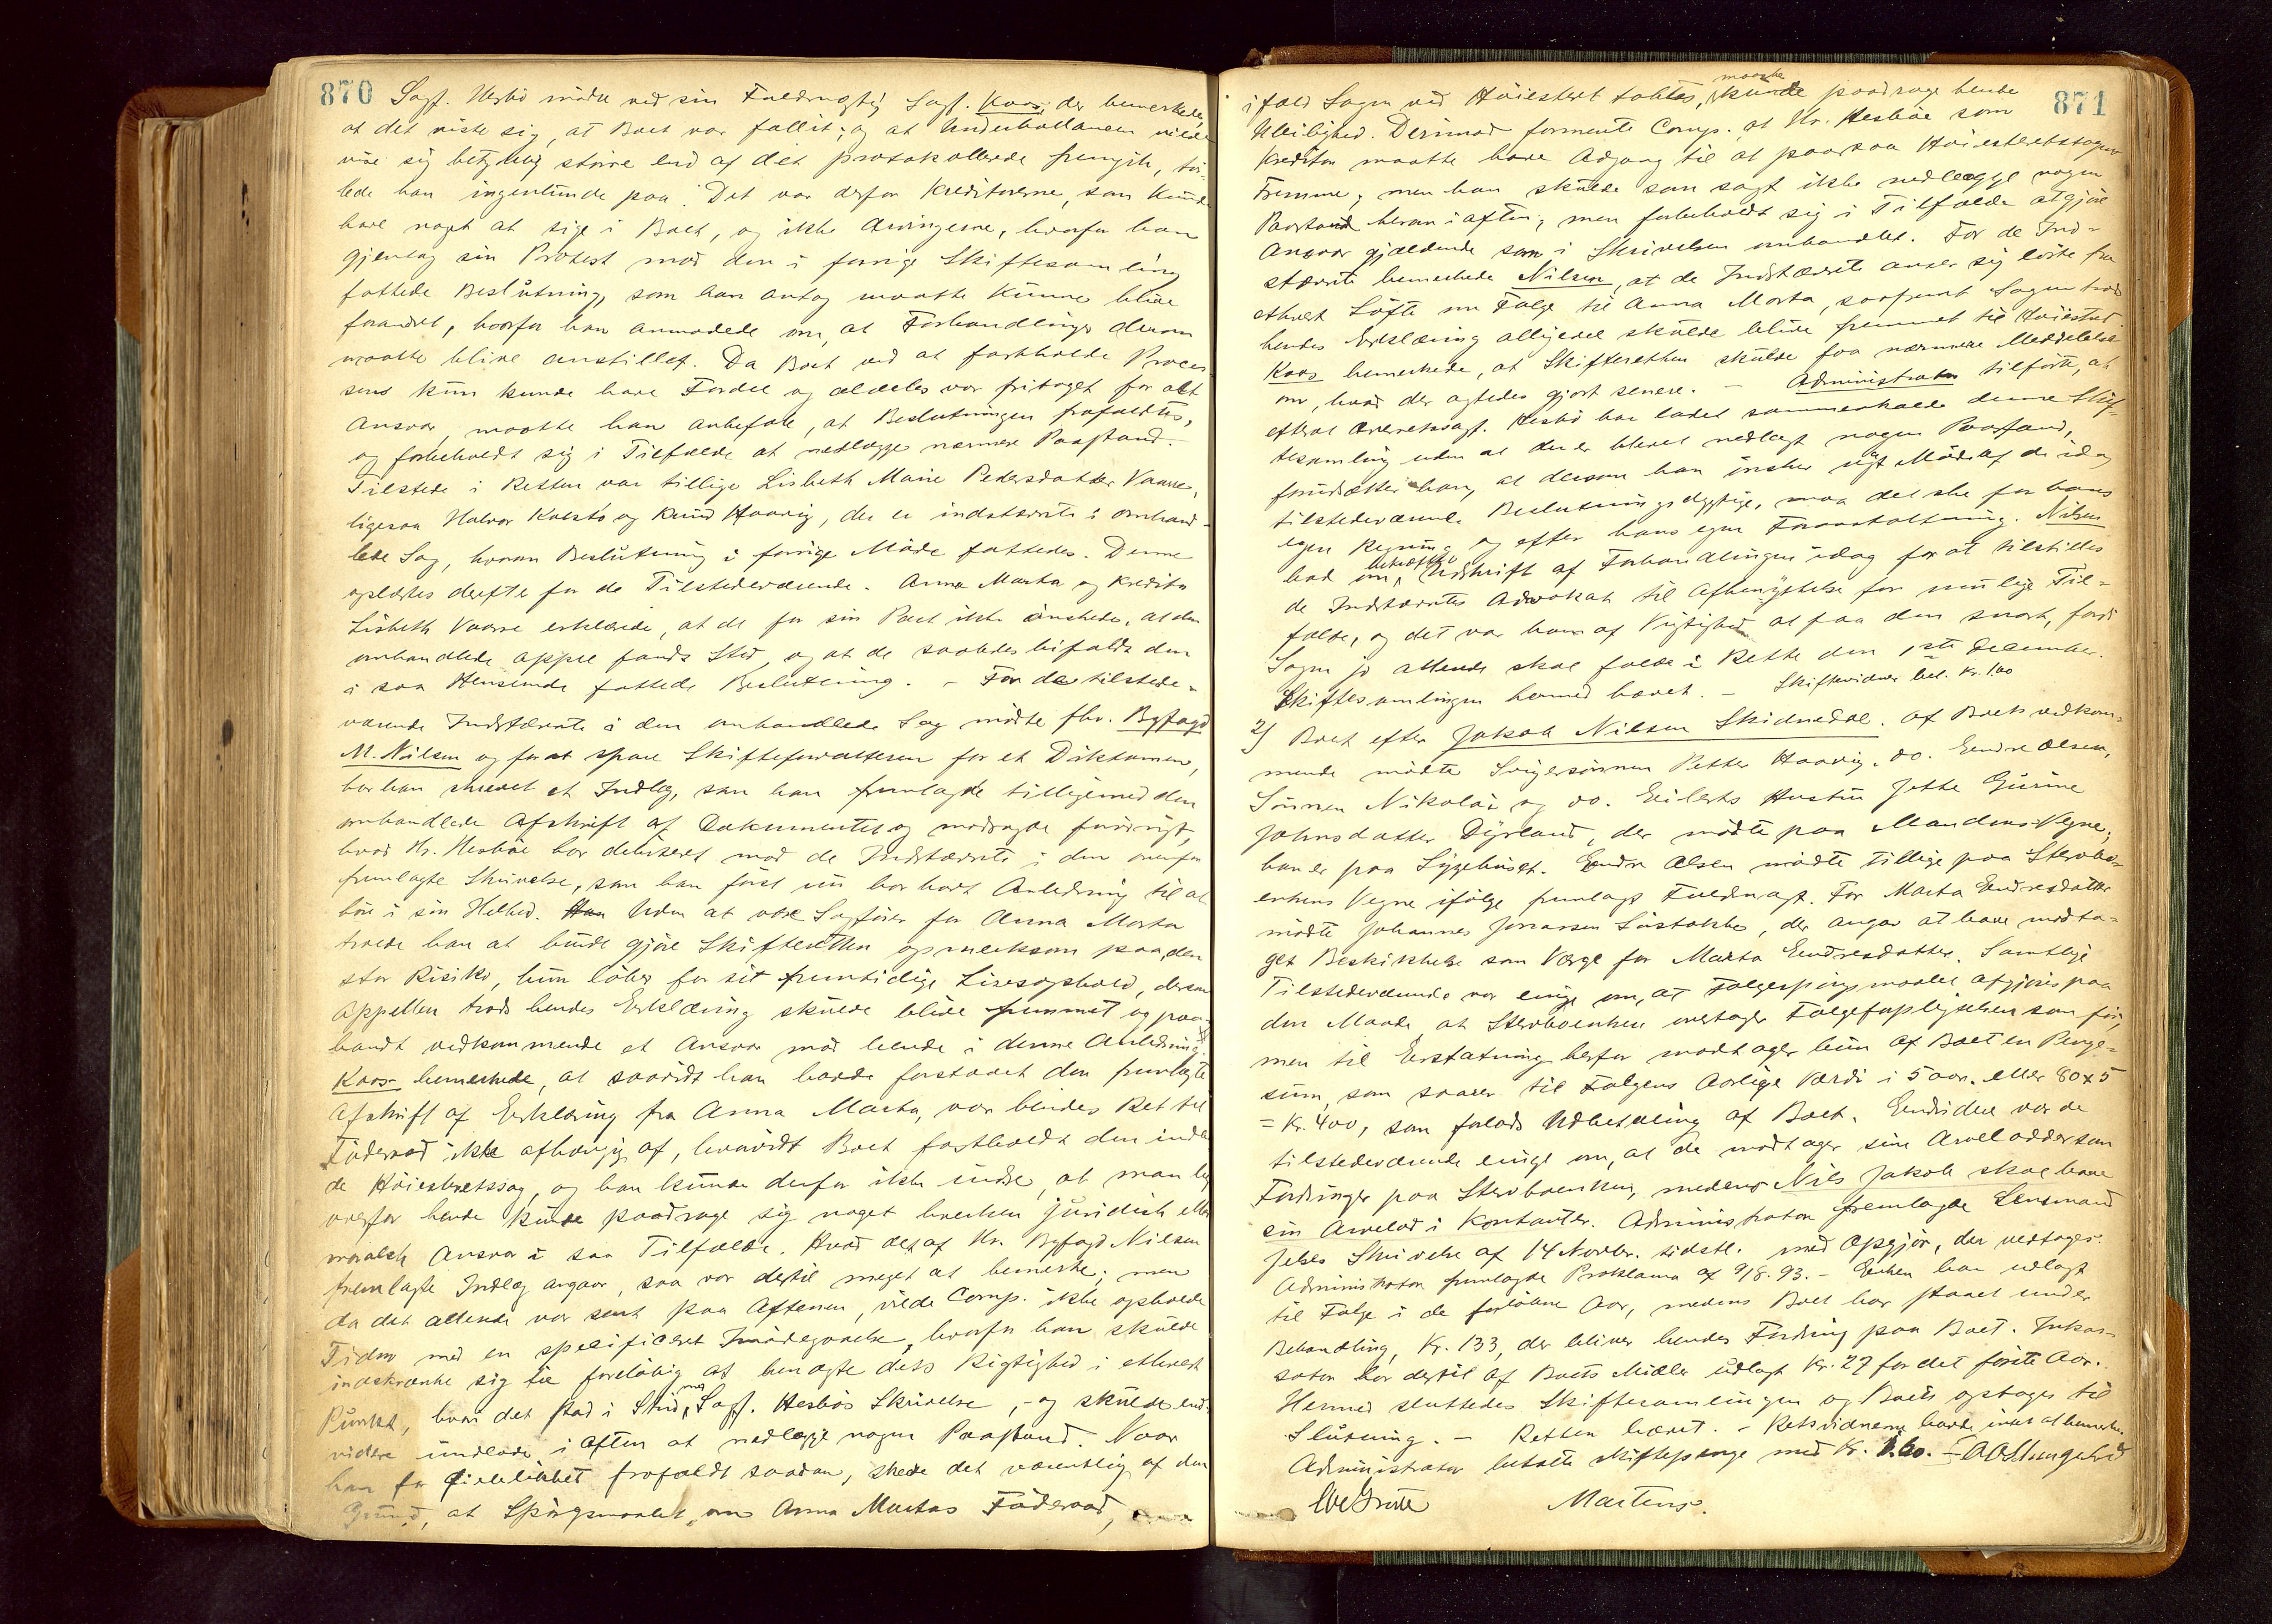 870
Sagf. Hesbö mödte ved sin Fuldmægtig Sagf. Koos, der bemerkede
at det viste sig, at Boet var fallit; og at Underballancen vilde
vise sig betydelig större end af det protokollerede fremgik, tvi-
lede han ingenlunde paa. Det var derfor Kreditorerne, som kunde
have noget at sige i Boet, og ikke Arvingerne, hvorfor han
gjentog sin Protest mod den i forrige Skiftesamling
fattede Beslutning, som han antog maatte kunne blive
forandret, hvorfor han anmodede om, at Forhandlinger derom
maatte blive anstillet. Da Boet ved at fastholde Proces-
sens kun kunde have Fordel og aldeles var fritaget for alt
Ansvar, maatte han anbefale, at Beslutningen frafaldtes,
og forbeholdt sig i Tilfælde at nedlægge nærmere Paastand.
Tilstede i Retten var tillige Lisbeth Marie Pedersdatter Vaarre,
ligesaa Halvor Kolstö og Knud Haavig, der er indstævnte i omhand-
lede Sag, hvorom Beslutning i forrige Möde fattedes. Denne
oplæstes derefter for de Tilstedeværende. Anna Marta og Kreditor
Lisbeth Vaarre erklærede, at de for sin Part ikke önskede, at den
omhandlede Appel fandt Sted, og at de saaledes bifaldt den
i saa Henseende fattede Beslutning. – For de tilstede-
værende Indstævnte i den omhandlede Sag mödte fhv. Byfogd
M. Nilsen og for at spare Skifteforvalteren for et Diktamen,
har han skrevet et Indlæg, som han fremlagde tilligemed den
omhandlede Afskrift af Dokumentet og modsagde forövrigt,
hvad Hr. Hesböe har debiteret mod de Indstævnte i den ovenfor
fremlagte Skrivelse, som han först nu har havt Anledning til at
höre i sin Helhed. Uden at være Sagförer for Anna Marta
troede han at burde gjöre Skifteretten opmerksom paa den
stor Risiko, hun löber for sit fremtidige Livsophold, dersom
Appellen trods hendes Erklæring skulde blive fremmet og paa-
bandt vedkommende et Ansvar mod hende i denne Anledning.
Koos bemerkede, at saavidt han havde forstaaet den fremlagte
Afskrift af Erklæring fra Anna Marta, var hendes Ret til
Föderaad ikke afhængig af, hvorvidt Boet fastholdt den indan-
de Höiesteretssag, og han kunde derfor ikke indse, at man lige-
overfor hende kunde paadrage sig noget hverken juridisk eller
moralsk Ansvar i saa Tilfælde. Hvad det af Hr. Byfogd Nilsen
fremlagte Indlæg angaar, saa var dertil meget at bemerke; men
da det allerede var sent paa Aftenen, vilde Comp. ikke opholde
Tiden med en specificeret Imödegaaelse, hvorfor han skulde
indskrænke sig til foreløbig at benægte dets Rigtighed i ethvert
Punkt, hvor det stod i Strid med Sagf. Hesbös Skrivelse, – og skulde end-
videre undlade i Aften at nedlægge nogen Paastand. Naar
han for Öieblikket frafaldt saadan, skede det væsentlig af den
Grund, at Spörgsmaalet om Anna Martas Föderaad,
871
ifald Sagen ved Höiesteret tabtes, maaske kunde paadrage hende
Uleilighed. Derimod formente Comp. at Hr. Hesböe som
Kreditor maatte have Adgang til at paastaa Höiesteretssagens
Fremme; men han skulde som sagt ikke nedlægge nogen
Paastand herom iaften; men forbeholdt sig i Tilfælde at gjöre
Ansvar gjældende som i Skrivelsen omhandlet. For de Ind-
stævnte bemerkede Nilsen, at de Indstævnte anser sig löste fra
ethvert Löfte om Folge til Anna Marta, saafremt Sagen trods
hendes Erklæring alligevel skulde blive fremmet til Höiesteret
Koos bemerkede, at Skifteretten skulde faa nærmere Meddelelse
om, hvad der agtedes gjort senere. – Administrator tilförte, at
efterat Overretssagf. Hesbö har ladet sammenkalde denne Skif-
tesamling uden at der er blevet nedlagt nogen Paastand,
forudsætter han, at dersom han önsker nyt Möde af de idag
tilstedeværende Beslutningsdygtige, maa det ske for hans
egen Regning og efter hans egen Foranstaltning. Nilsen
bad om bekræftet Udskrift af Forhandlingen idag for at tilstilles
de Indstævntes Advokat til Afbenyttelse for mulige Til-
fælde, og det var ham af Vigtighed at faa den snart, fordi
Sagen jo allerede skal folde i Rette den 1ste December.
Skiftesamlingen hermed hævet. – Skiftevidner bet. Kr. 1.00
2) Boet efter Jakob Nilsen Skidnedal. Af Boets vedkom-
mende mödte Svigersönnen Petter Haavig, do. Eendre Olsen,
Sönnen Nikolai og do. Eilerts Hustru Jette Gurine
Johnsdatter Dyrland, der mödte paa Mandens Vegne;
han er paa Sygehuset. Eendre Olsen mödte tillige paa Stervbo-
enkens Vegne ifölge fremlagt Fuldmagt. For Marta Eendresdatter
mödte Johannes Jonassen Sörstokke, der angav at have modta-
get Beskikkelse som Værge for Marta Eendresdatter. Samtlige
Tilstedeværende var enige om, at Folgespörgsmaalet afgjöres paa
den Maade at Stervboenken overtager Folgeforpligtelsen som för,
men til Erstatning herfor modtager hun af Boet en Penge-
sum, som svarer til Folgens Aarlige Værdi i 5 aar. eller 80 x 5
= Kr. 400, som forlods Udbetaling af Boet. Eendvidere var de
tilstedeværende enige om, at de modtager sine Arvelodder som
Fordringer paa Stervboenken, medens Nils Jakob skal have
sin Arvelod i Kontanter. Administrator fremlagde Lensmand
Jelsas Skrivelse af 14 Novbr. sidstl. med Opgjör, der vedtoges.
Administrator fremlagde Proklama af 9/8. 93. – Enken har udlagt
til Folge i de forlöbne Aar, medens Boet har staaet under
Behandling, Kr. 133, der bliver hendes Fordring paa Boet. Inkas-
sator har dertil af Boets Midler udlagt Kr. 27 for det förste Aar.
Hermed sluttedes Skiftesamlingen og Boets optages til
Slutning. – Retten hævet. – Retsvidnerne havde intet at bemerke.
Administrator betalte Skiftepenge med Kr. 1.60. –
Martens.